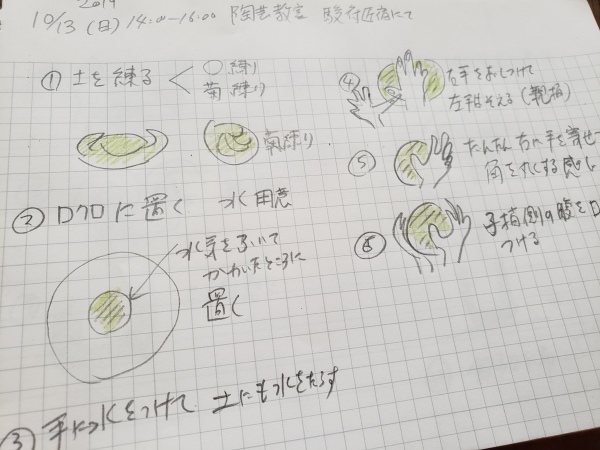 2019
10/13 (日) 14:00-16:00 陶芸教室 駿府匠宿にて
① 土を練る < ○練り
菊練り
菊練り
② ロクロに置く 水用意
水気を
かわいたところに
置く
③ 手に水をつけて 土にも水をたらす
④ 右手をおしつけて
左手はそえる(親指)
⑤ だんだん右に手を寄せ
角を丸くする感じ
⑥ 子指側の腹を
つける